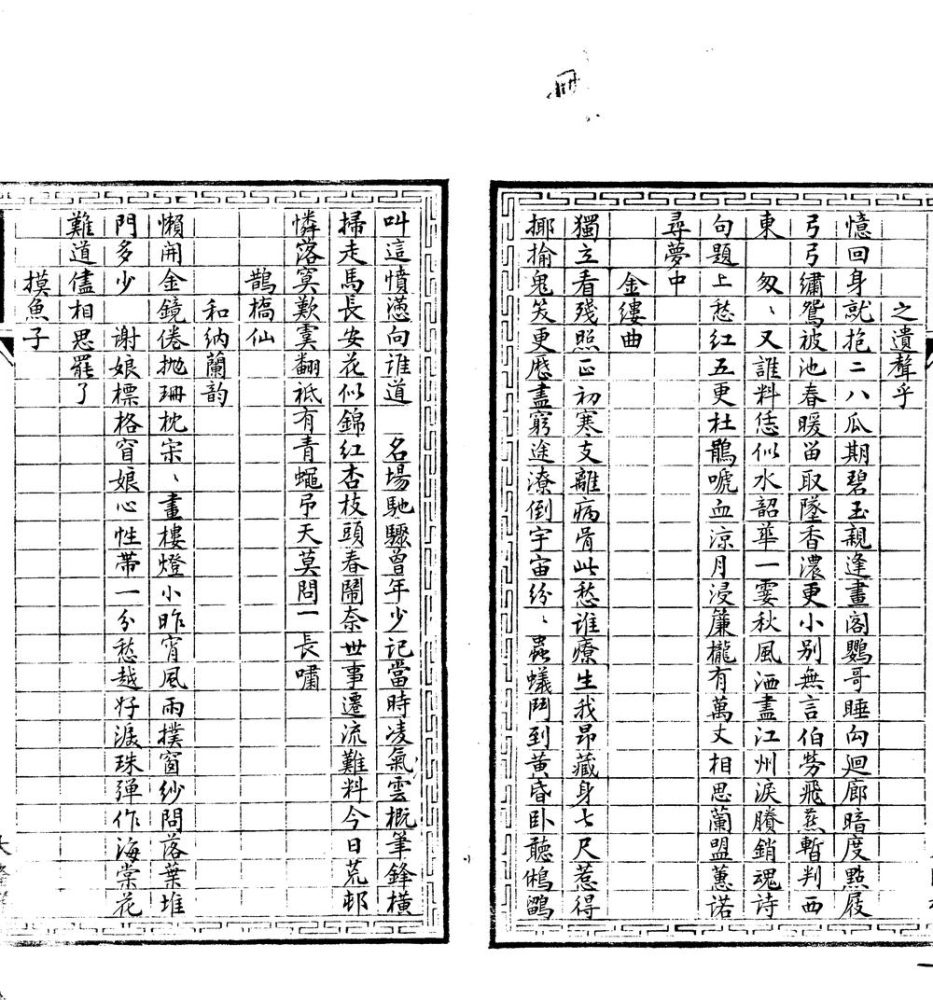 之遺聲乎
憶回身就抱二八瓜期碧玉親逢畫閣鸚哥睡向迴廊暗度點屐
弓弓繡鴛被池春暖留取墜香濃更小別無言伯勞飛燕暫判西
東　匆〻又誰料恁似水韶華一霎秋風洒盡江州淚賸銷魂詩
句題上愁紅五更杜鵑嗁血涼月浸簾櫳有萬丈相思蘭盟蕙諾
尋夢中
金縷曲
獨立看殘照正初寒支離病骨此愁誰療生我昂藏身七尺惹得
揶揄鬼笑更歷盡窮途潦倒宇宙紛〻蟲蟻鬥到黃昏卧聽鵂鶹
叫這憤懣向誰道　名場馳驟曾年少記當時凌氣雲概筆鋒橫
掃走馬長安花似錦紅杏枝頭春鬧奈世事遷流難料今日荒邨
憐落寞歎虞翻祇有青蠅弔天莫問一長嘯
鵲橋仙
和納蘭韵
懶開金鏡倦拋珊枕寂〻畫樓燈小昨宵風雨撲窗紗問落葉堆
門多少　謝娘標格窅娘心性帶一分愁越好淚珠彈作海棠花
難道儘相思罷了
摸魚子